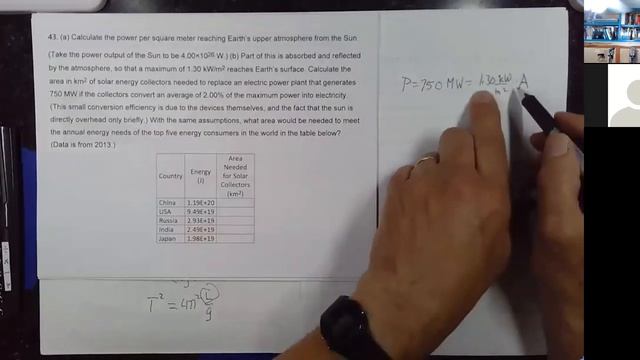 43. (a) Calculate the power per square meter reaching Earth's upper atmosphere from the Sun
(Take the power output of the Sun to be 4.00×10²⁶ W.) (b) Part of this is absorbed and reflected
by the atmosphere, so that a maximum of 1.30 kW/m² reaches Earth's surface. Calculate the
area in km² of solar energy collectors needed to replace an electric power plant that generates
750 MW if the collectors convert an average of 2.00% of the maximum power into electricity.
(This small conversion efficiency is due to the devices themselves, and the fact that the sun is
directly overhead only briefly.) With the same assumptions, what area would be needed to meet
the annual energy needs of the top five energy consumers in the world in the table below?
(Data is from 2013.)
Country Energy (J) Area Needed for Solar Collectors (km²)
China 1.19E+20
USA 9.49E+19
Russia 2.93E+19
India 2.49E+19
Japan 1.98E+19
P = 750 MW = 1.30 kW/m² A
T² = 4π² L/g